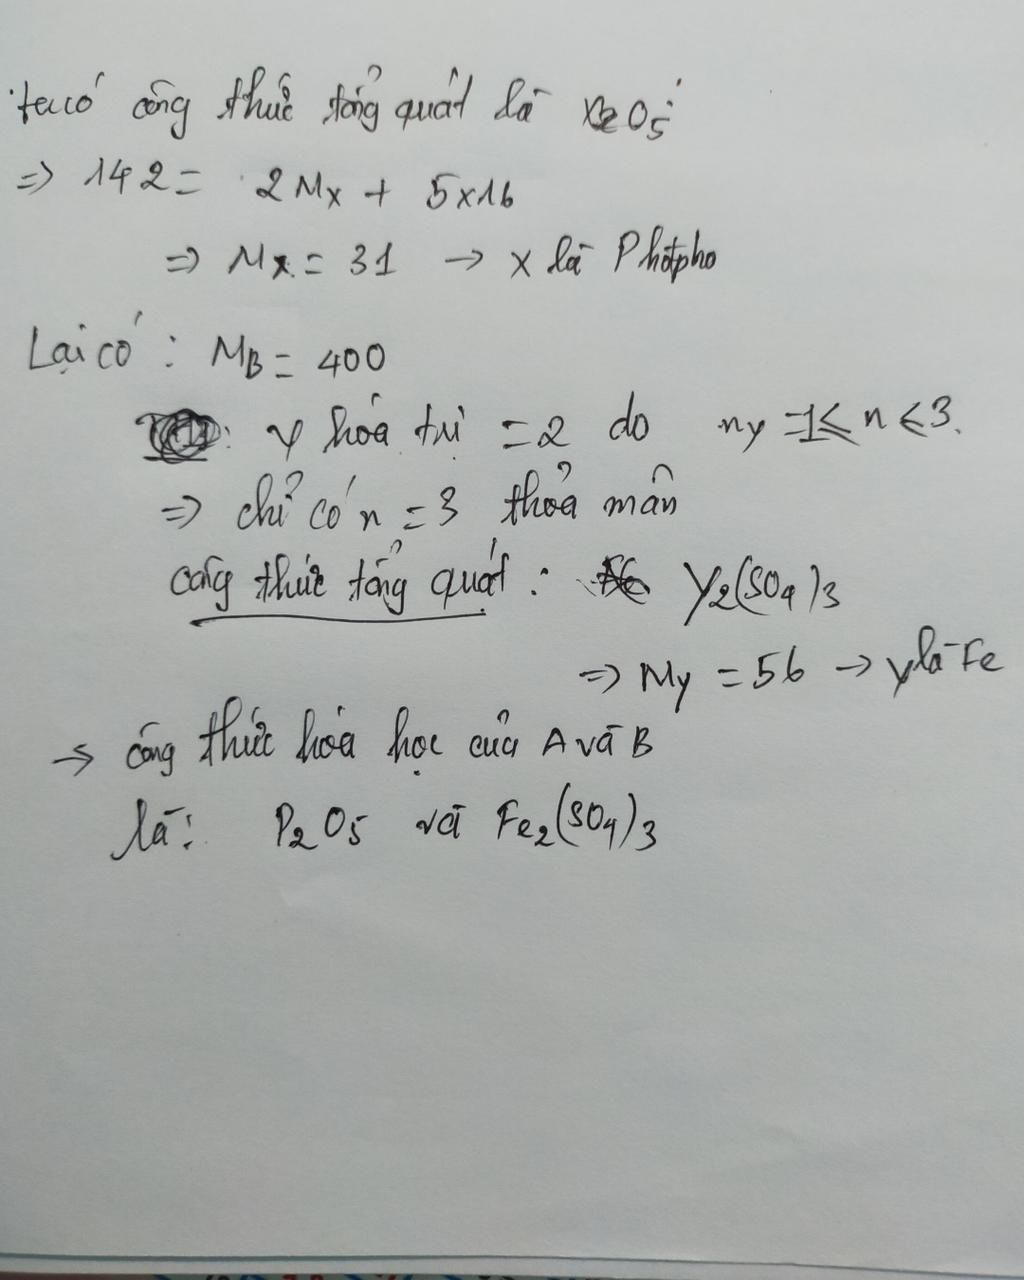 ta có công thức tổng quát là X2O5
=> 142 = 2Mx + 5x16
=> Mx = 31 -> X là Photpho
Lại có : MB = 400
: Y hóa trị = 2 do ny = 1 ≤ n ≤ 3.
=> chỉ có n = 3 thỏa mãn
công thức tổng quát : Y2(SO4)3
=> My = 56 -> Y là Fe
-> công thức hóa học của A và B
là: P2O5 và Fe2(SO4)3